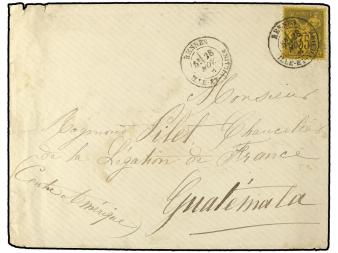 RENNES
18
NOV
ILLE-ET-VILAINE
RENNES
25
ILLE-ET-VILAINE
Monsieur
Raymond Pilet Chancelier
de la Légation de France
Guatémala
Centre Amérique